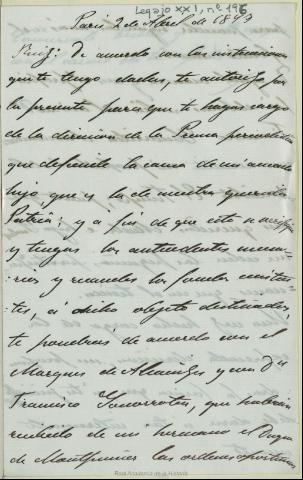 Legajo XXI, nº 196
Paris 2 de Abril de 1873
Ruiz: De acuerdo con las instrucciones
que te tengo dadas, te autorizo por
la presente para que te hagas cargo
de la direccion de la Prensa periodistica
que defiende la causa de mi amado
hijo, que es la de nuestra querida
Patria: y á fin de que esto se verifique
y tengas los antecedentes necesa-
:rios y recaudes los fondos existen-
:tes, á dicho objeto destinados,
te pondrás de acuerdo con el
Marques de Alcañices y con Dn
Francisco Goicorrotea, que habrán
recibido de mi hermano el Duque
de Montpensier las ordenes oportunas
Real Academia de la Historia